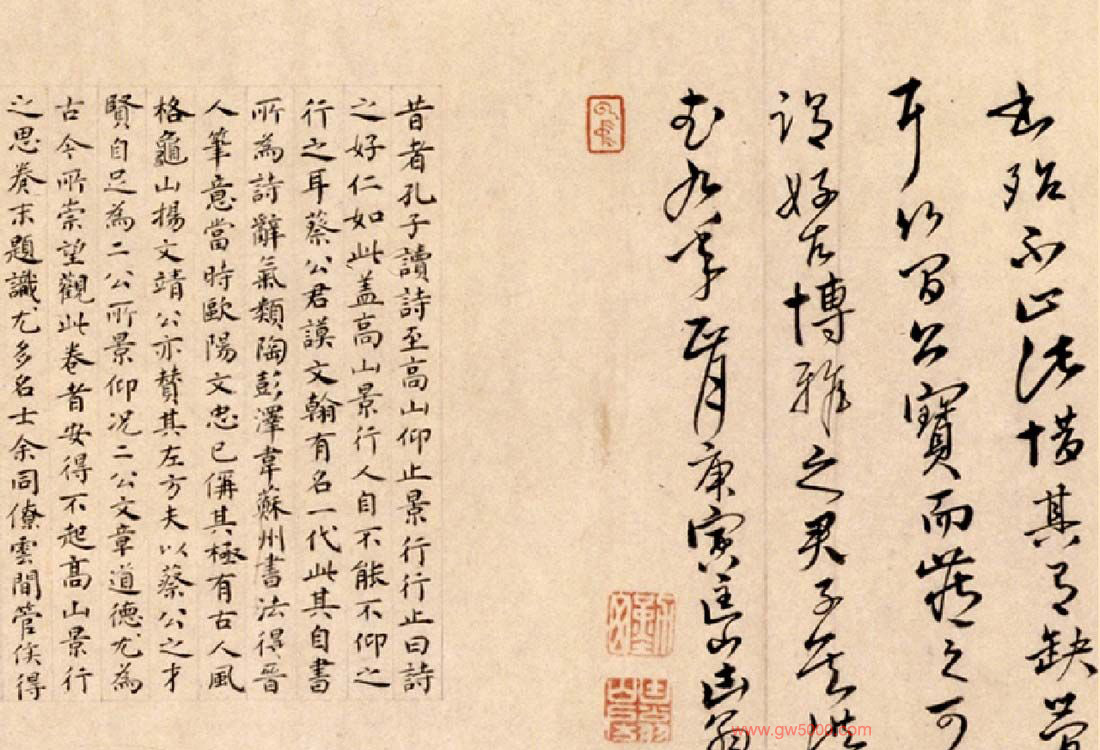 殆不止此惜其有缺
耳公寶而藏之可
謂好古博雅之君子矣洪
武九年正月庚寅匡山
昔者孔子讀詩至高山仰止景行行止曰詩
之好仁如此盖高山景行人自不能不仰之
行之耳蔡公君謨文翰有名一代此其自書
所為詩辭氣類陶彭澤韋蘇州書法得晉
人筆意當時歐陽文忠已偁其極有古人風
格龜山揚文靖公亦贊其左方夫以蔡公之才
賢自足為二公所景仰况二公文章道德尤為
古今所崇望觀此卷者安得不起高山景行
之思卷末題識尤多名士余同僚雲間管侯得
www.gw5000.com